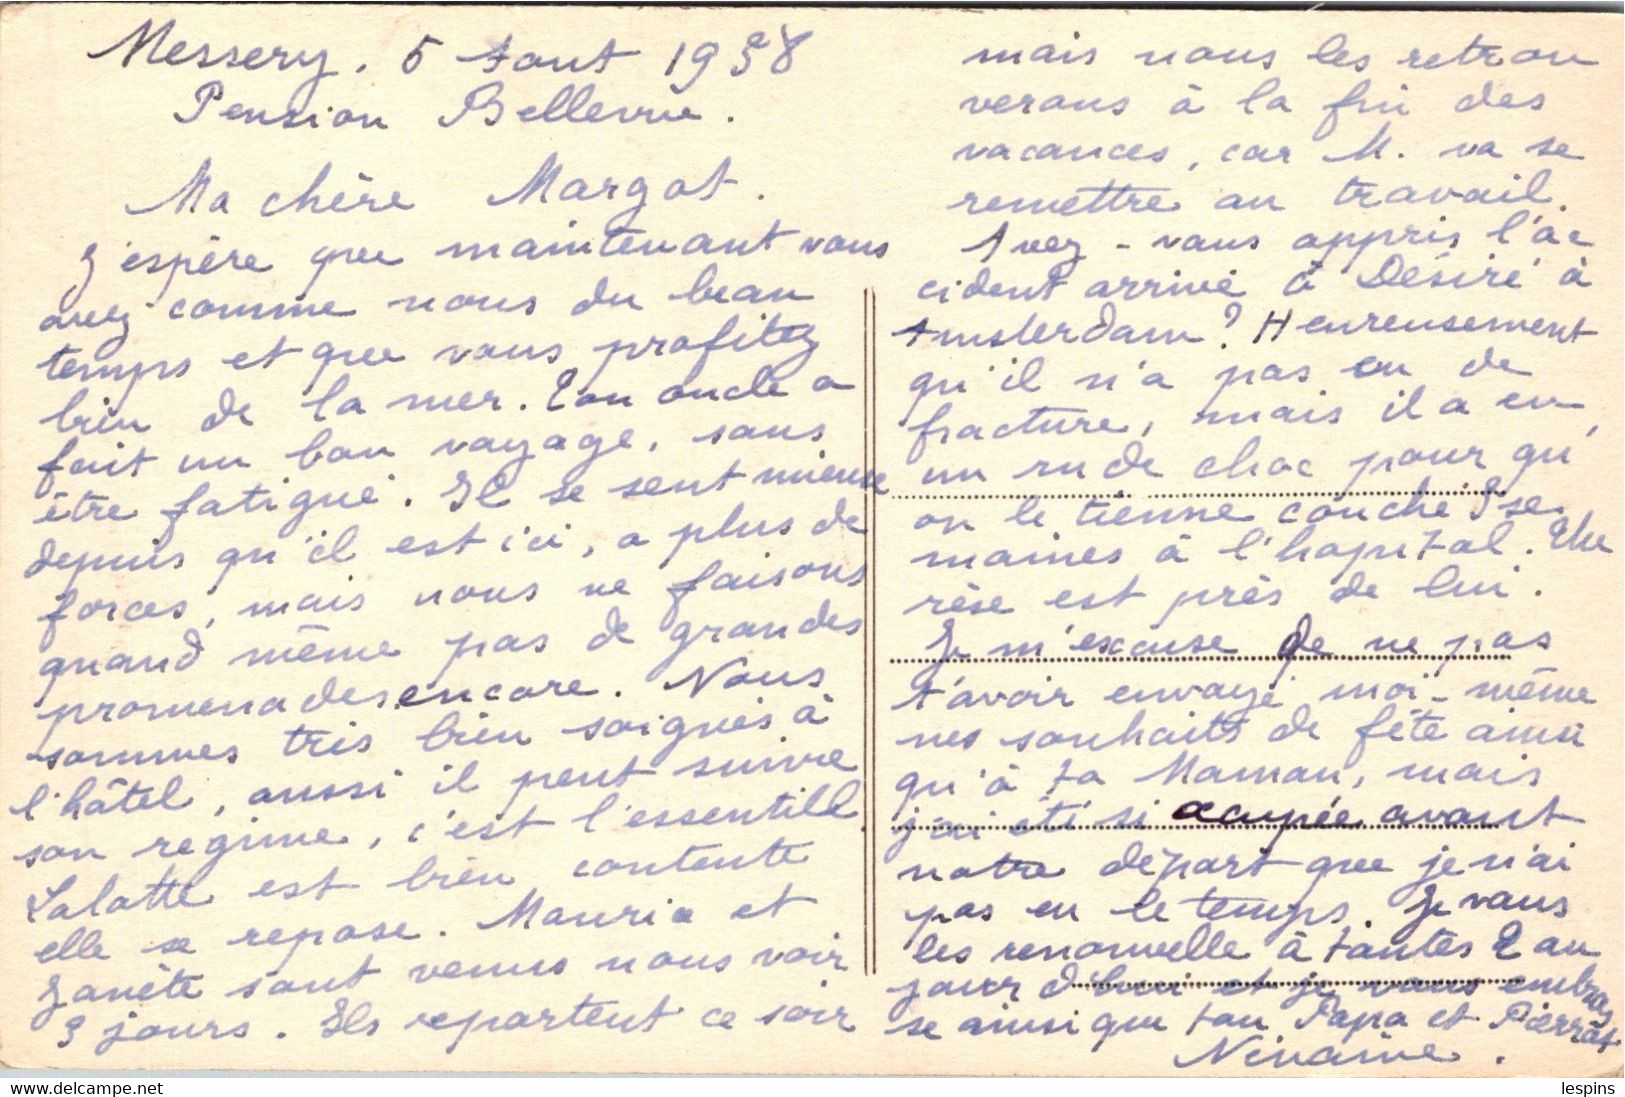 Messery. 5 Août 1938
Pension Bellevue.
Ma chère Margot.
J'espère que maintenant vous
avez comme nous du beau
temps et que vous profitez
bien de la mer. Ton oncle a
fait un bon voyage, sans
être fatigué. Il se sent mieux
depuis qu'il est ici, a plus de
forces, mais nous ne faisons
quand même pas de grandes
promenades encore. Nous
sommes très bien soignés à
l'hôtel, aussi il peut suivre
son régime, c'est l'essentill.
Lolotte est bien contente
elle se repose. Maurice et
Janète sont venus nous voir
3 jours. Ils repartent ce soir
mais nous les retrou
verons à la fin des
vacances, car M. va se
remettre au travail.
Avez-vous appris l'ac
cident arrivé à Désiré à
Amsterdam? Heureusement
qu'il n'a pas eu de
fracture, mais il a eu
un rude choc pour qu'
on le tienne couché 3 se
maines à l'hopital. Thé
rèse est près de lui.
Je m'excuse de ne pas
t'avoir envoyé moi-même
mes souhaits de fête ainsi
qu'à ta Maman, mais
j'ai été si occupée avant
notre départ que je n'ai
pas eu le temps. Je vous
les renouvelle à toutes 2 au
jourd'hui et je vous embras
se ainsi que ton Papa et Pierrot.
Ninaine.
lespins